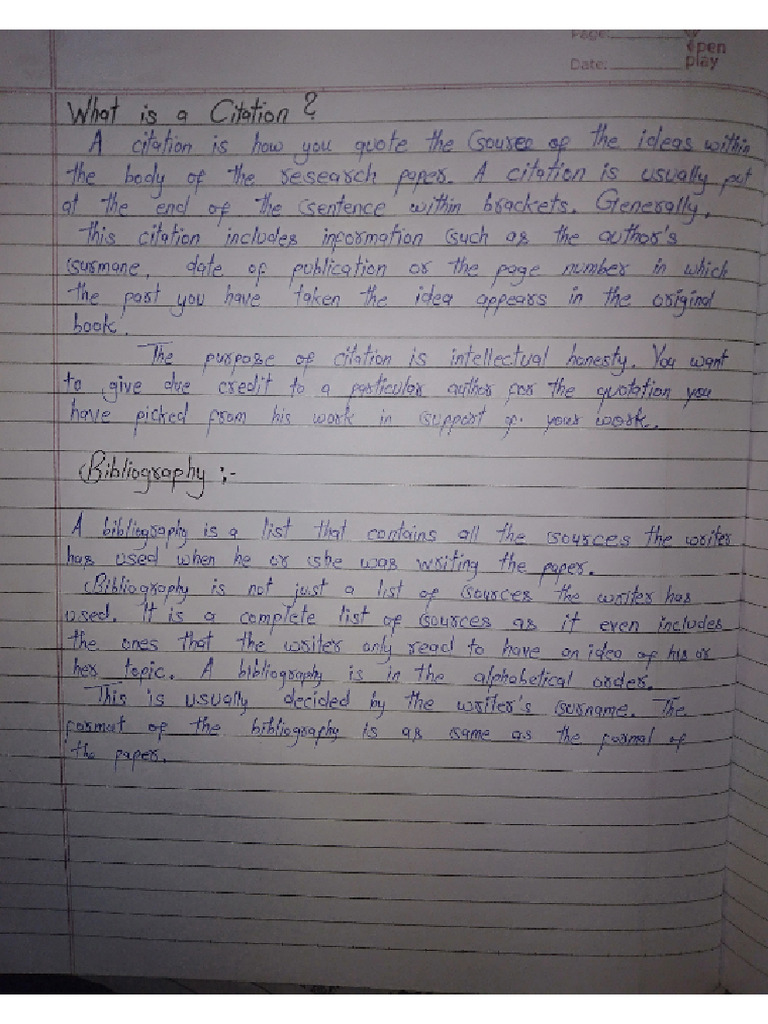 Page:
Date:
open
play
What is a Citation?
A citation is how you quote the source of the ideas within
the body of the research paper. A citation is usually put
at the end of the sentence within brackets. Generally,
this citation includes information such as the author's
surmane, date of publication or the page number in which
the part you have taken the idea appears in the original
book.
The purpose of citation is intellectual honesty. You want
to give due credit to a particular author for the quotation you
have picked from his work in support of your work.
Bibliography :-
A bibliography is a list that contains all the sources the writer
has used when he or she was writing the paper.
Bibliography is not just a list of sources the writer has
used. It is a complete list of sources as it even includes
the ones that the writer only read to have an idea of his or
her topic. A bibliography is in the alphabetical order.
This is usually decided by the writer's surname. The
format of the bibliography is as same as the format of
the paper.